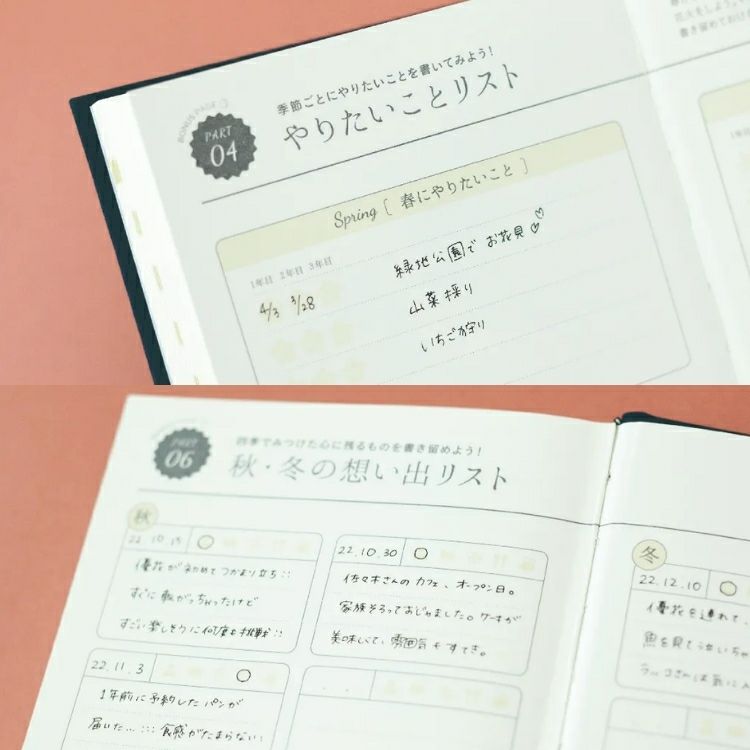 花火をしよう。
書き留めておけ
BONUS PAGE
PART
04
季節ごとにやりたいことを書いてみよう!
やりたいことリスト
Spring [ 春にやりたいこと ]
1年目 2年目 3年目
4/3 3/28 緑地公園で お花見♡♡
山菜採り
いちご狩り
1年目
PART
06
四季でみつけた心に残るものを書き留めよう!
秋・冬の想い出リスト
秋
22.10.15
優花が初めてつかまり立ち::
すぐに転がっちゃったけど
すごい楽しそうに何度も挑戦::
22.10.30
佐々木さんのカフェ、オープン日。
家族そろっておじゃました。ケーキが
美味しくて、雰囲気もすてき。
22.11.3
1年前に予約したパンが
届いた...::: 食感がたまらない:
冬
22.12.10
優花を連れて、
魚を見て